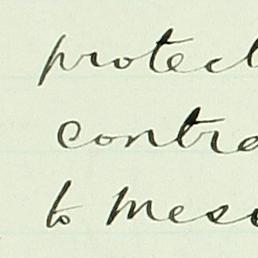 protect
contra
to Meso